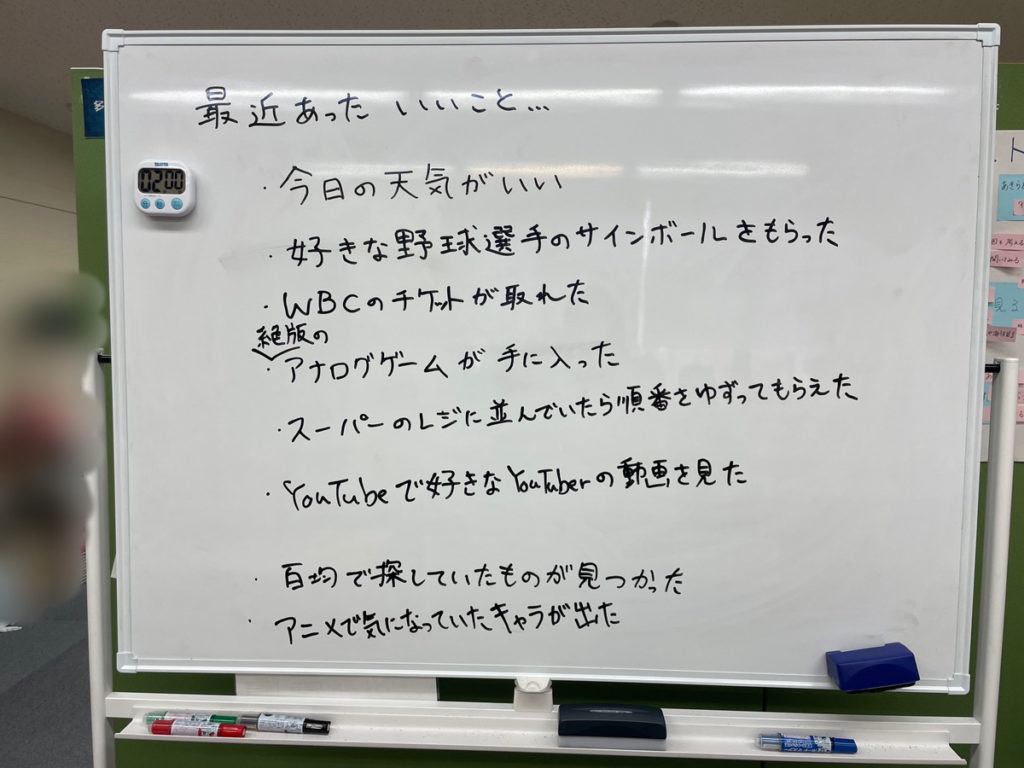 最近あった いいこと...
02:00
・今日の天気がいい
・好きな野球選手のサインボールをもらった
・WBCのチケットが取れた
絶版の
・アナログゲームが手に入った
・スーパーのレジに並んでいたら順番をゆずってもらえた
・YouTubeで好きなYouTuberの動画を見た
・百均で探していたものが見つかった
・アニメで気になっていたキャラが出た
多
見る